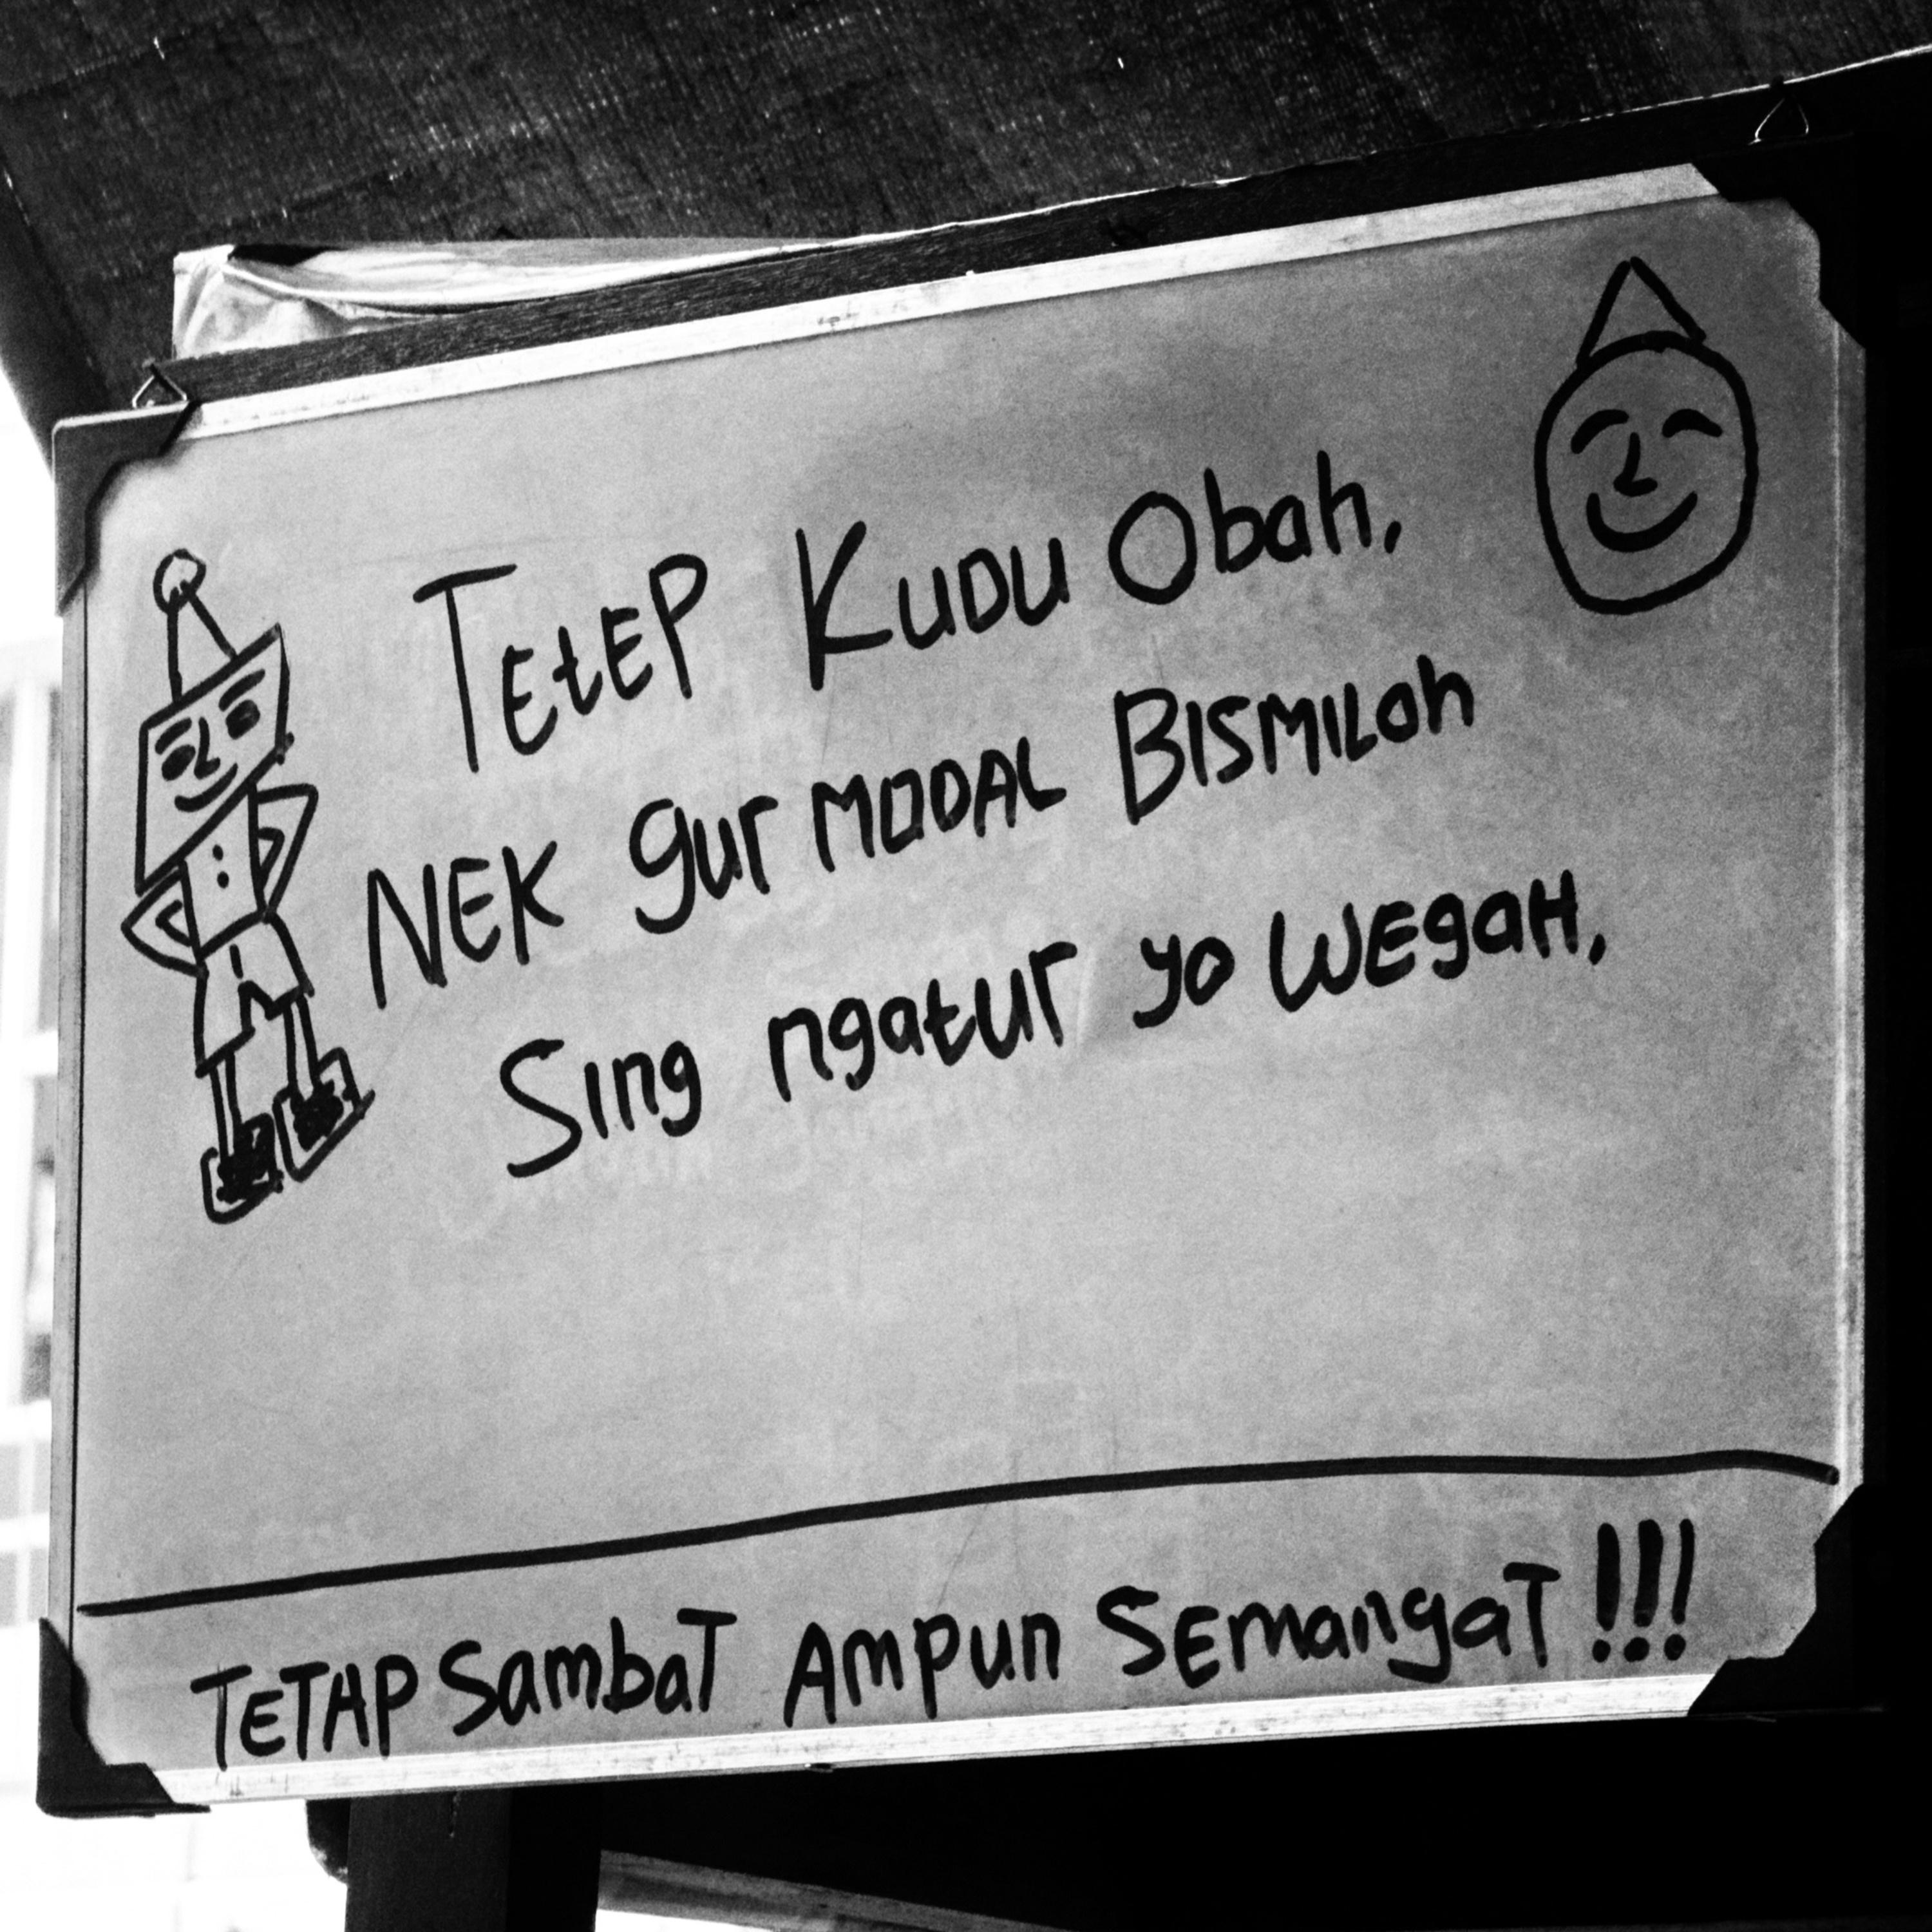 TEtEP KUDU Obah,
NEK gur MODAL BISMILOh
Sing ngatur yo WEgaH,
TETAP SambaT AmPun SEmangaT !!!